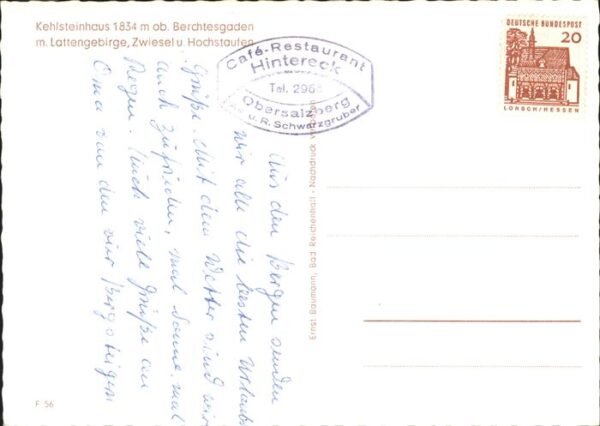 Kehlsteinhaus 1834 m ob. Berchtesgaden
m. Lattengebirge, Zwiesel u. Hochstaufen
Café-Restaurant
Hintereck
Tel. 296
Obersalzberg
u. R. Schwarzgruber
DEUTSCHE BUNDESPOST
20
LORSCH/HESSEN
Aus den Bergen senden
wir alle die besten Urlaubs
grüße. Mit dem Wetter sind wir
auch zufrieden, mal Sonne, mal
Regen. Auch viele Grüße an
Oma von den vier Bergsteigern
Ernst Baumann, Bad Reichenhall · Nachdruck
F 56